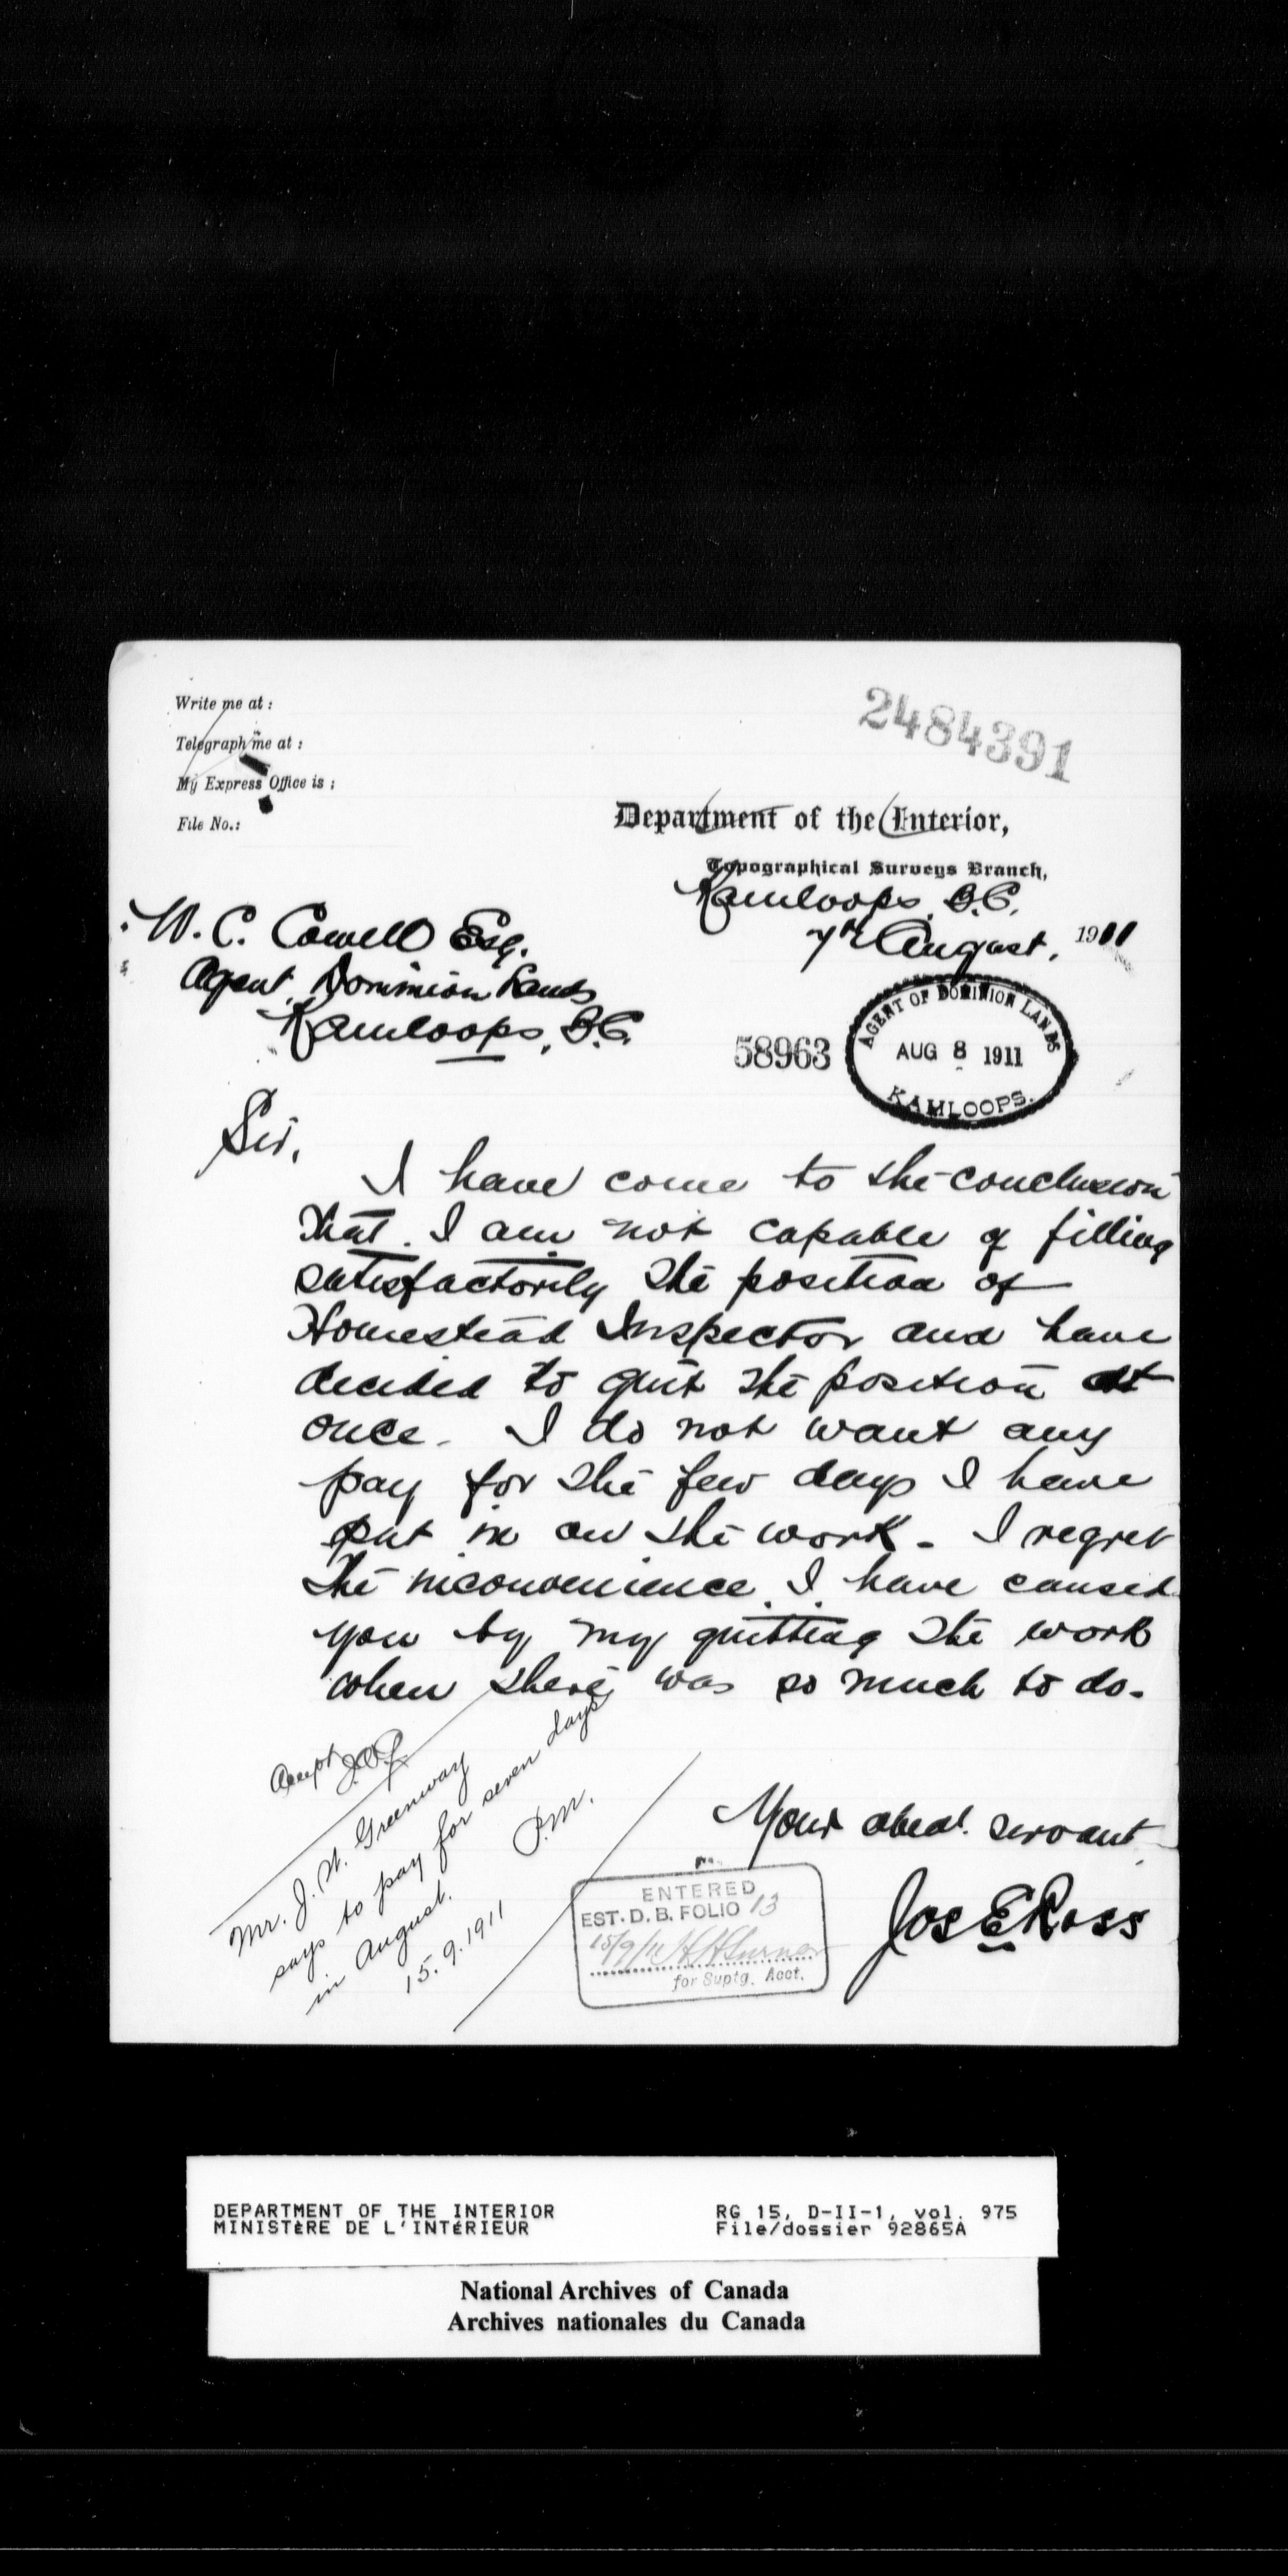 Write me at :
Telegraph me at :
My Express Office is :
File No.:
2484391
Department of the Interior,
Topographical Surveys Branch,
Kamloops, B.C.
7th August, 1911
W. C. Cowell Esq.
Agent, Dominion Lands
Kamloops, B.C.
58963
AGENT OF DOMINION LANDS
AUG 8 1911
KAMLOOPS.
Sir,
I have come to the conclusion
that I am not capable of filling
satisfactorily the position of
Homestead Inspector and have
decided to quit the position at
once. I do not want any
pay for the few days I have
put in on the work. I regret
the inconvenience I have caused
you by my quitting the work
when there was so much to do.
Your obedt. servant
Jos E Ross
Accept
Mr. J. W. Greenway
says to pay for seven days
in August. P.M.
15.9.1911
ENTERED
EST. D. B. FOLIO 13
15/9/11 Turner
for Suptg. Acct.
DEPARTMENT OF THE INTERIOR
MINISTÈRE DE L'INTÉRIEUR
RG 15, D-II-1, vol. 975
File/dossier 92865A
National Archives of Canada
Archives nationales du Canada